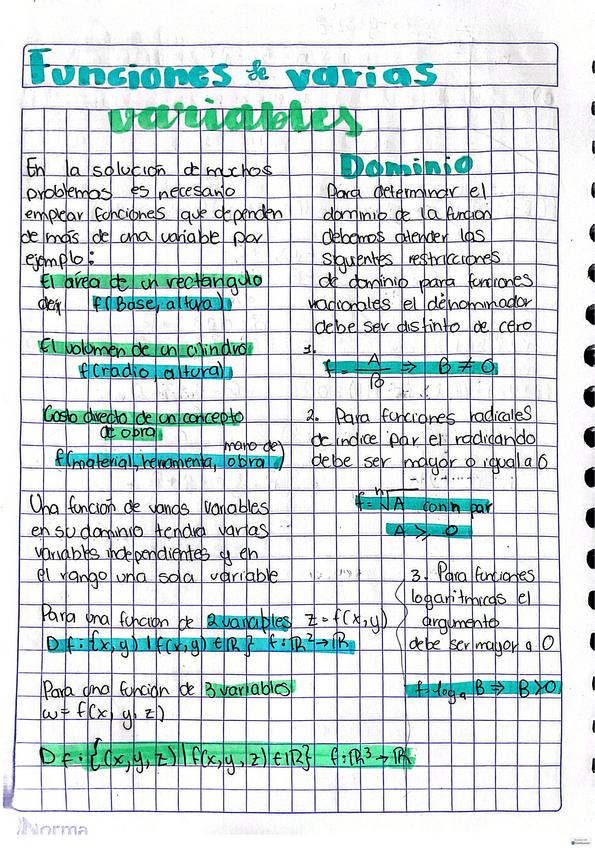 Funciones de varias
variables
En la solución de muchos
problemas es necesario
emplear funciones que dependen
de más de una variable por
ejemplo:
El área de un rectangulo
f(Base, altura)
El volumen de un cilindro
f(radio, altura)
Costo directo de un concepto
de obra
f(material, herramienta, mano de obra)
Una función de varias variables
en su dominio tendra varias
variables independientes y en
el rango una sola variable
Para una función de 2 variables z = f(x,y)
Df: {x,y) | f(x,y) ∈ ℝ} f: ℝ² → ℝ
Para una función de 3 variables
ω = f(x, y, z)
Df: {(x,y,z) | f(x,y,z) ∈ ℝ} f: ℝ³ → ℝ
Dominio
Para determinar el
dominio de la función
debemos atender las
siguientes restricciones
de dominio para funciones
racionales el denominador
debe ser distinto de cero
1.
f = A/B ⇒ B ≠ 0
2. Para funciones radicales
de indice par el radicando
debe ser mayor o igual a 0
f = ⁿ√A con n par
A ≥ 0
3. Para funciones
logaritmicas el
argumento
debe ser mayor a 0
f = logₐ B ⇒ B > 0
Norma